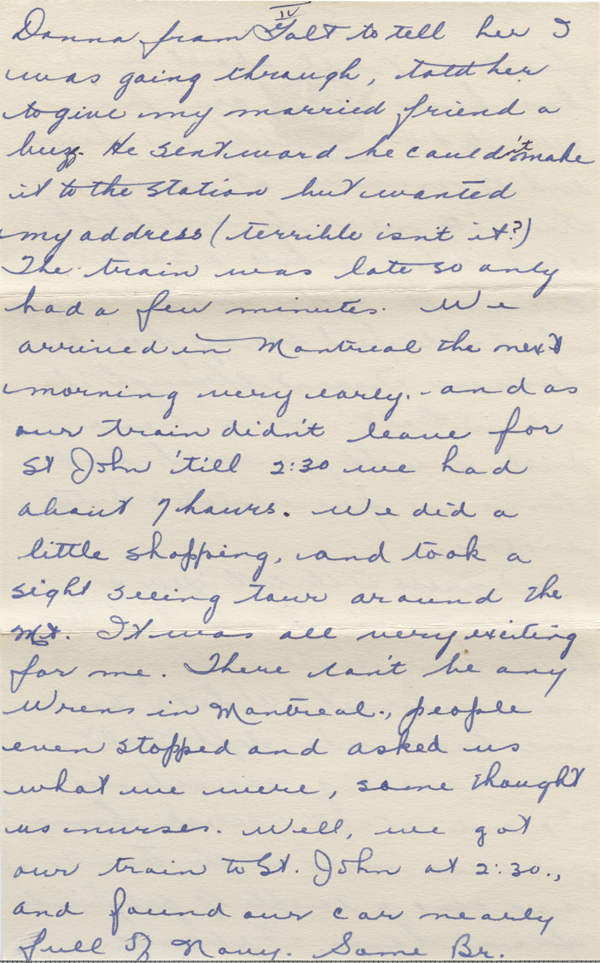 IV
Donna from Galt to tell her I
was going through, told her
to give my married friend a
buzz. He sent word he couldn't make
it to the station but wanted
my address (terrible isn't it?)
The train was late so only
had a few minutes. We
arrived in Montreal the next
morning very early. - and as
our train didn't leave for
St John 'till 2:30 we had
about 7 hours. We did a
little shopping, and took a
sight seeing tour around the
Mt. It was all very exciting
for me. There can't be any
Wrens in Montreal., people
even stopped and asked us
what we were, some thought
us nurses. Well, we got
our train to St. John at 2:30.,
and found our car nearly
full of Navy. Some Br.